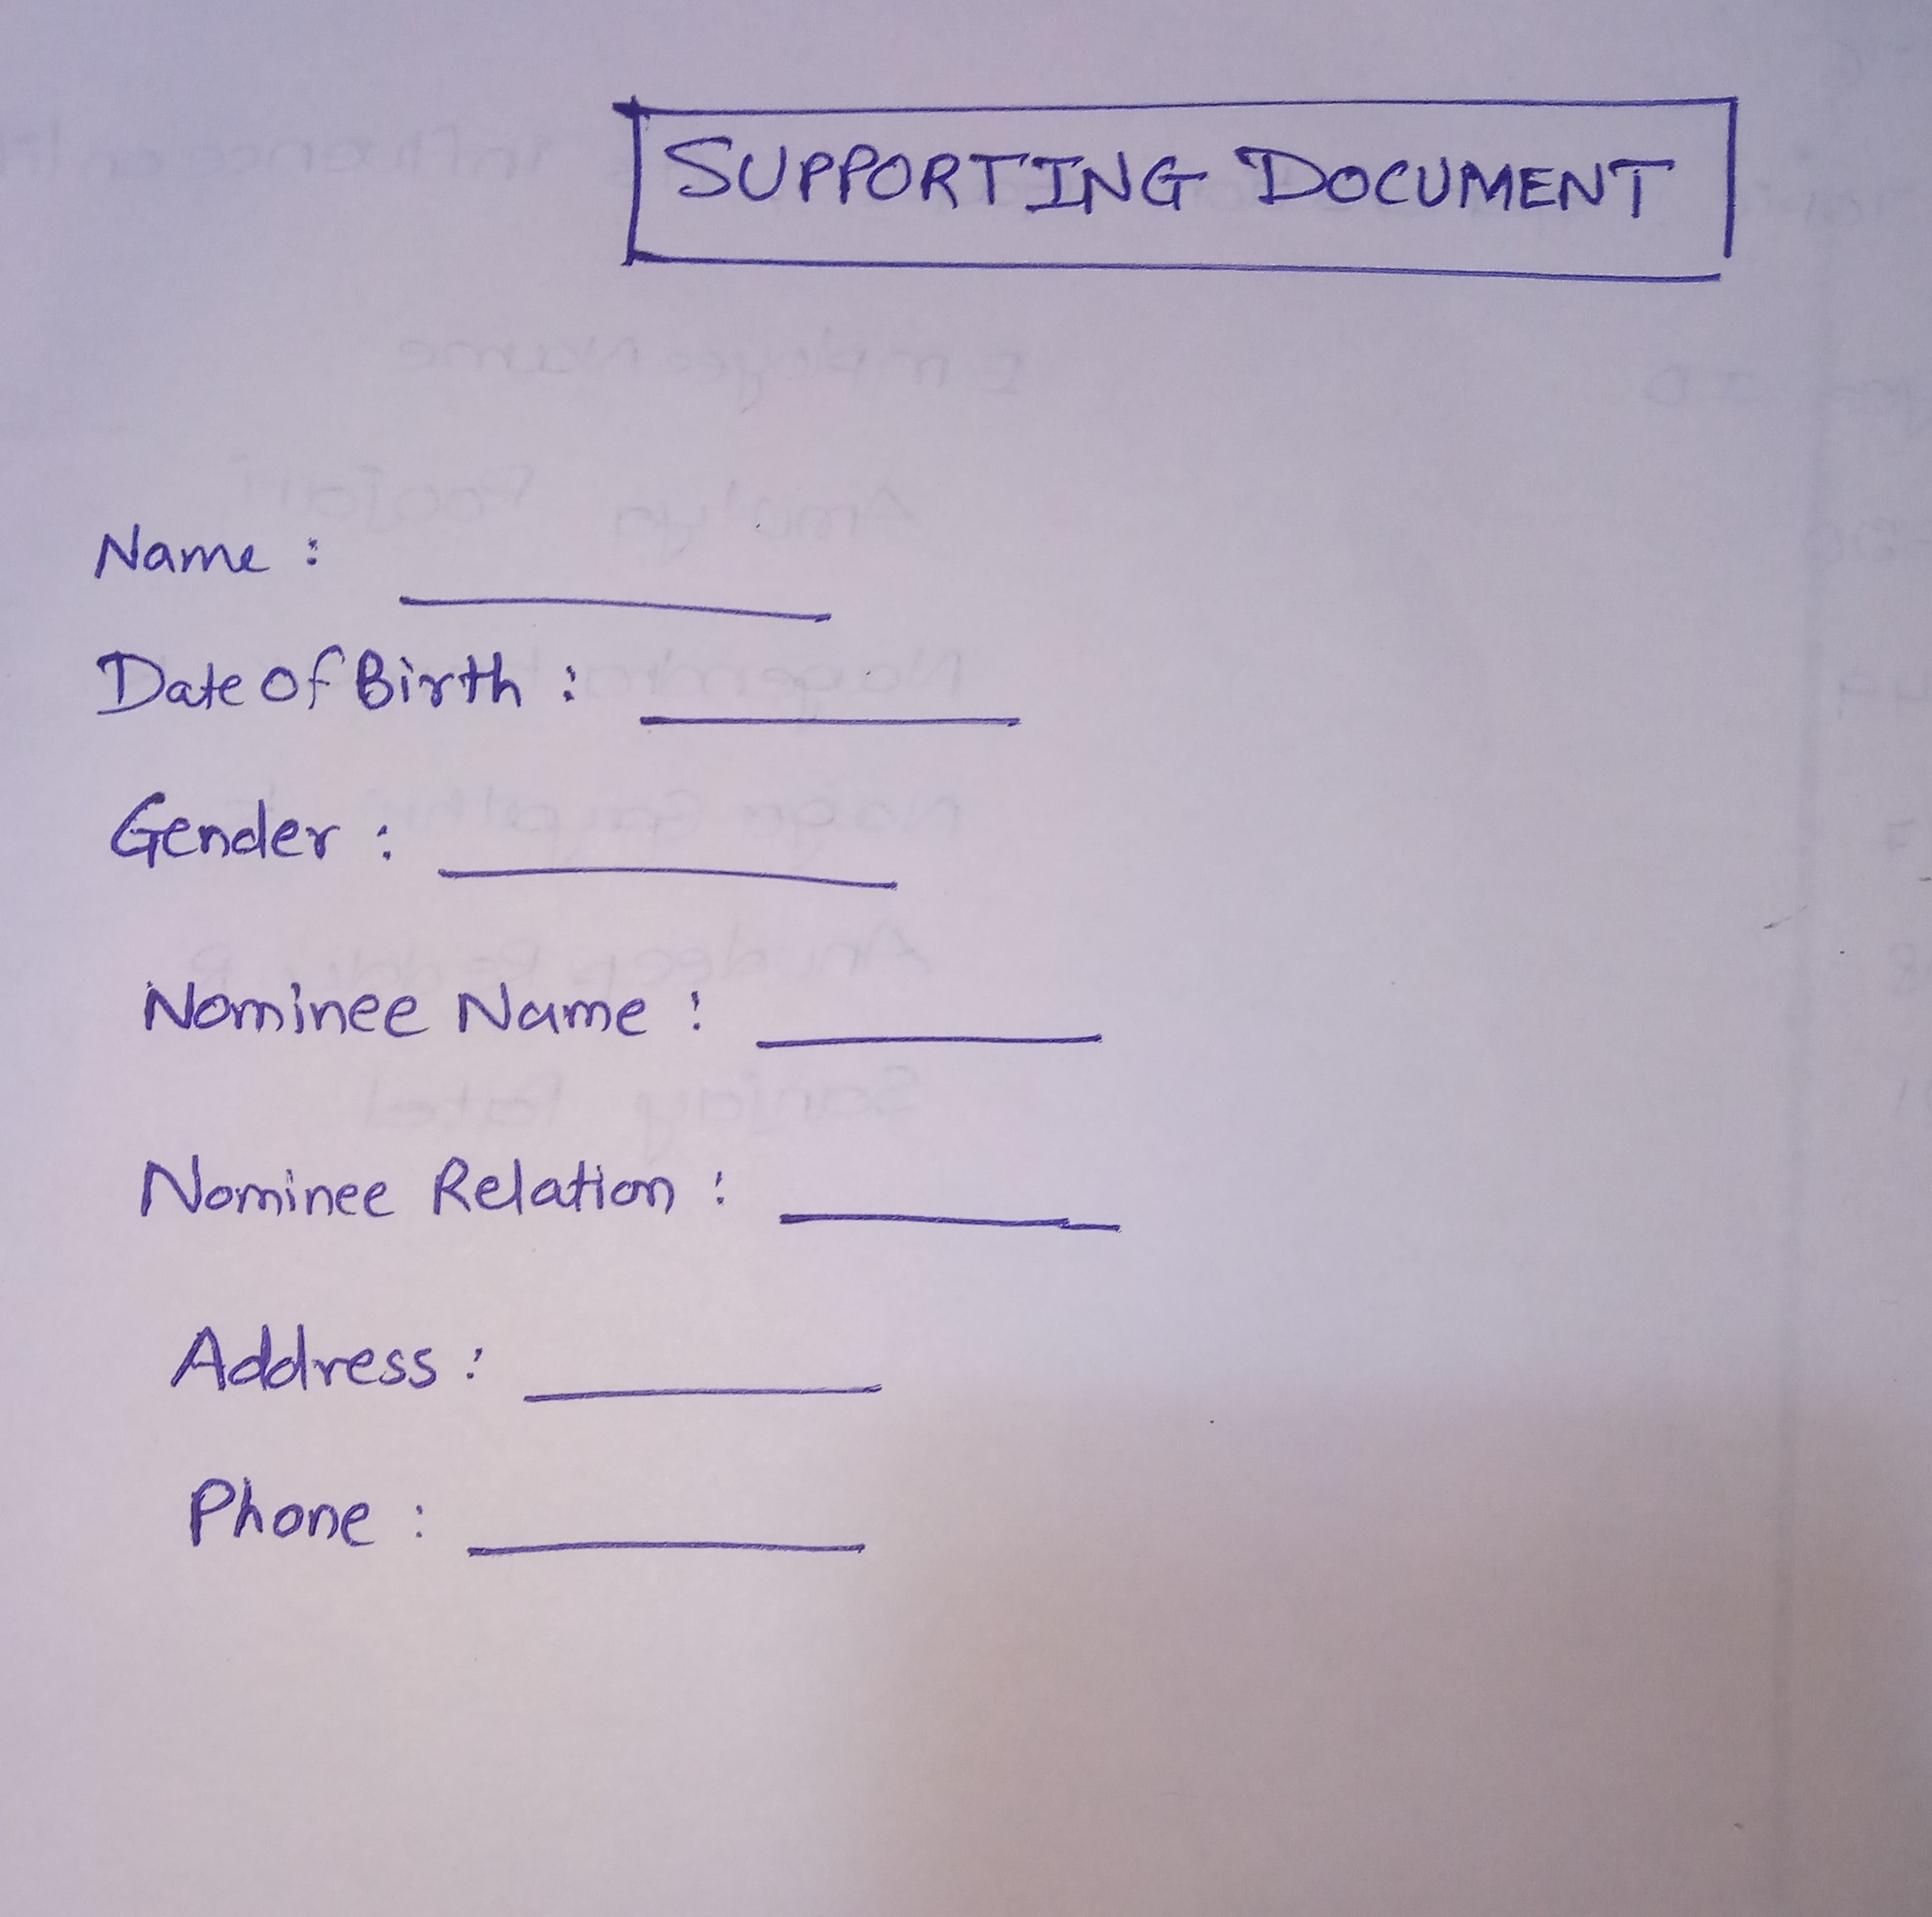 SUPPORTING DOCUMENT
Name :
Date Of Birth :
Gender :
Nominee Name :
Nominee Relation :
Address :
Phone :